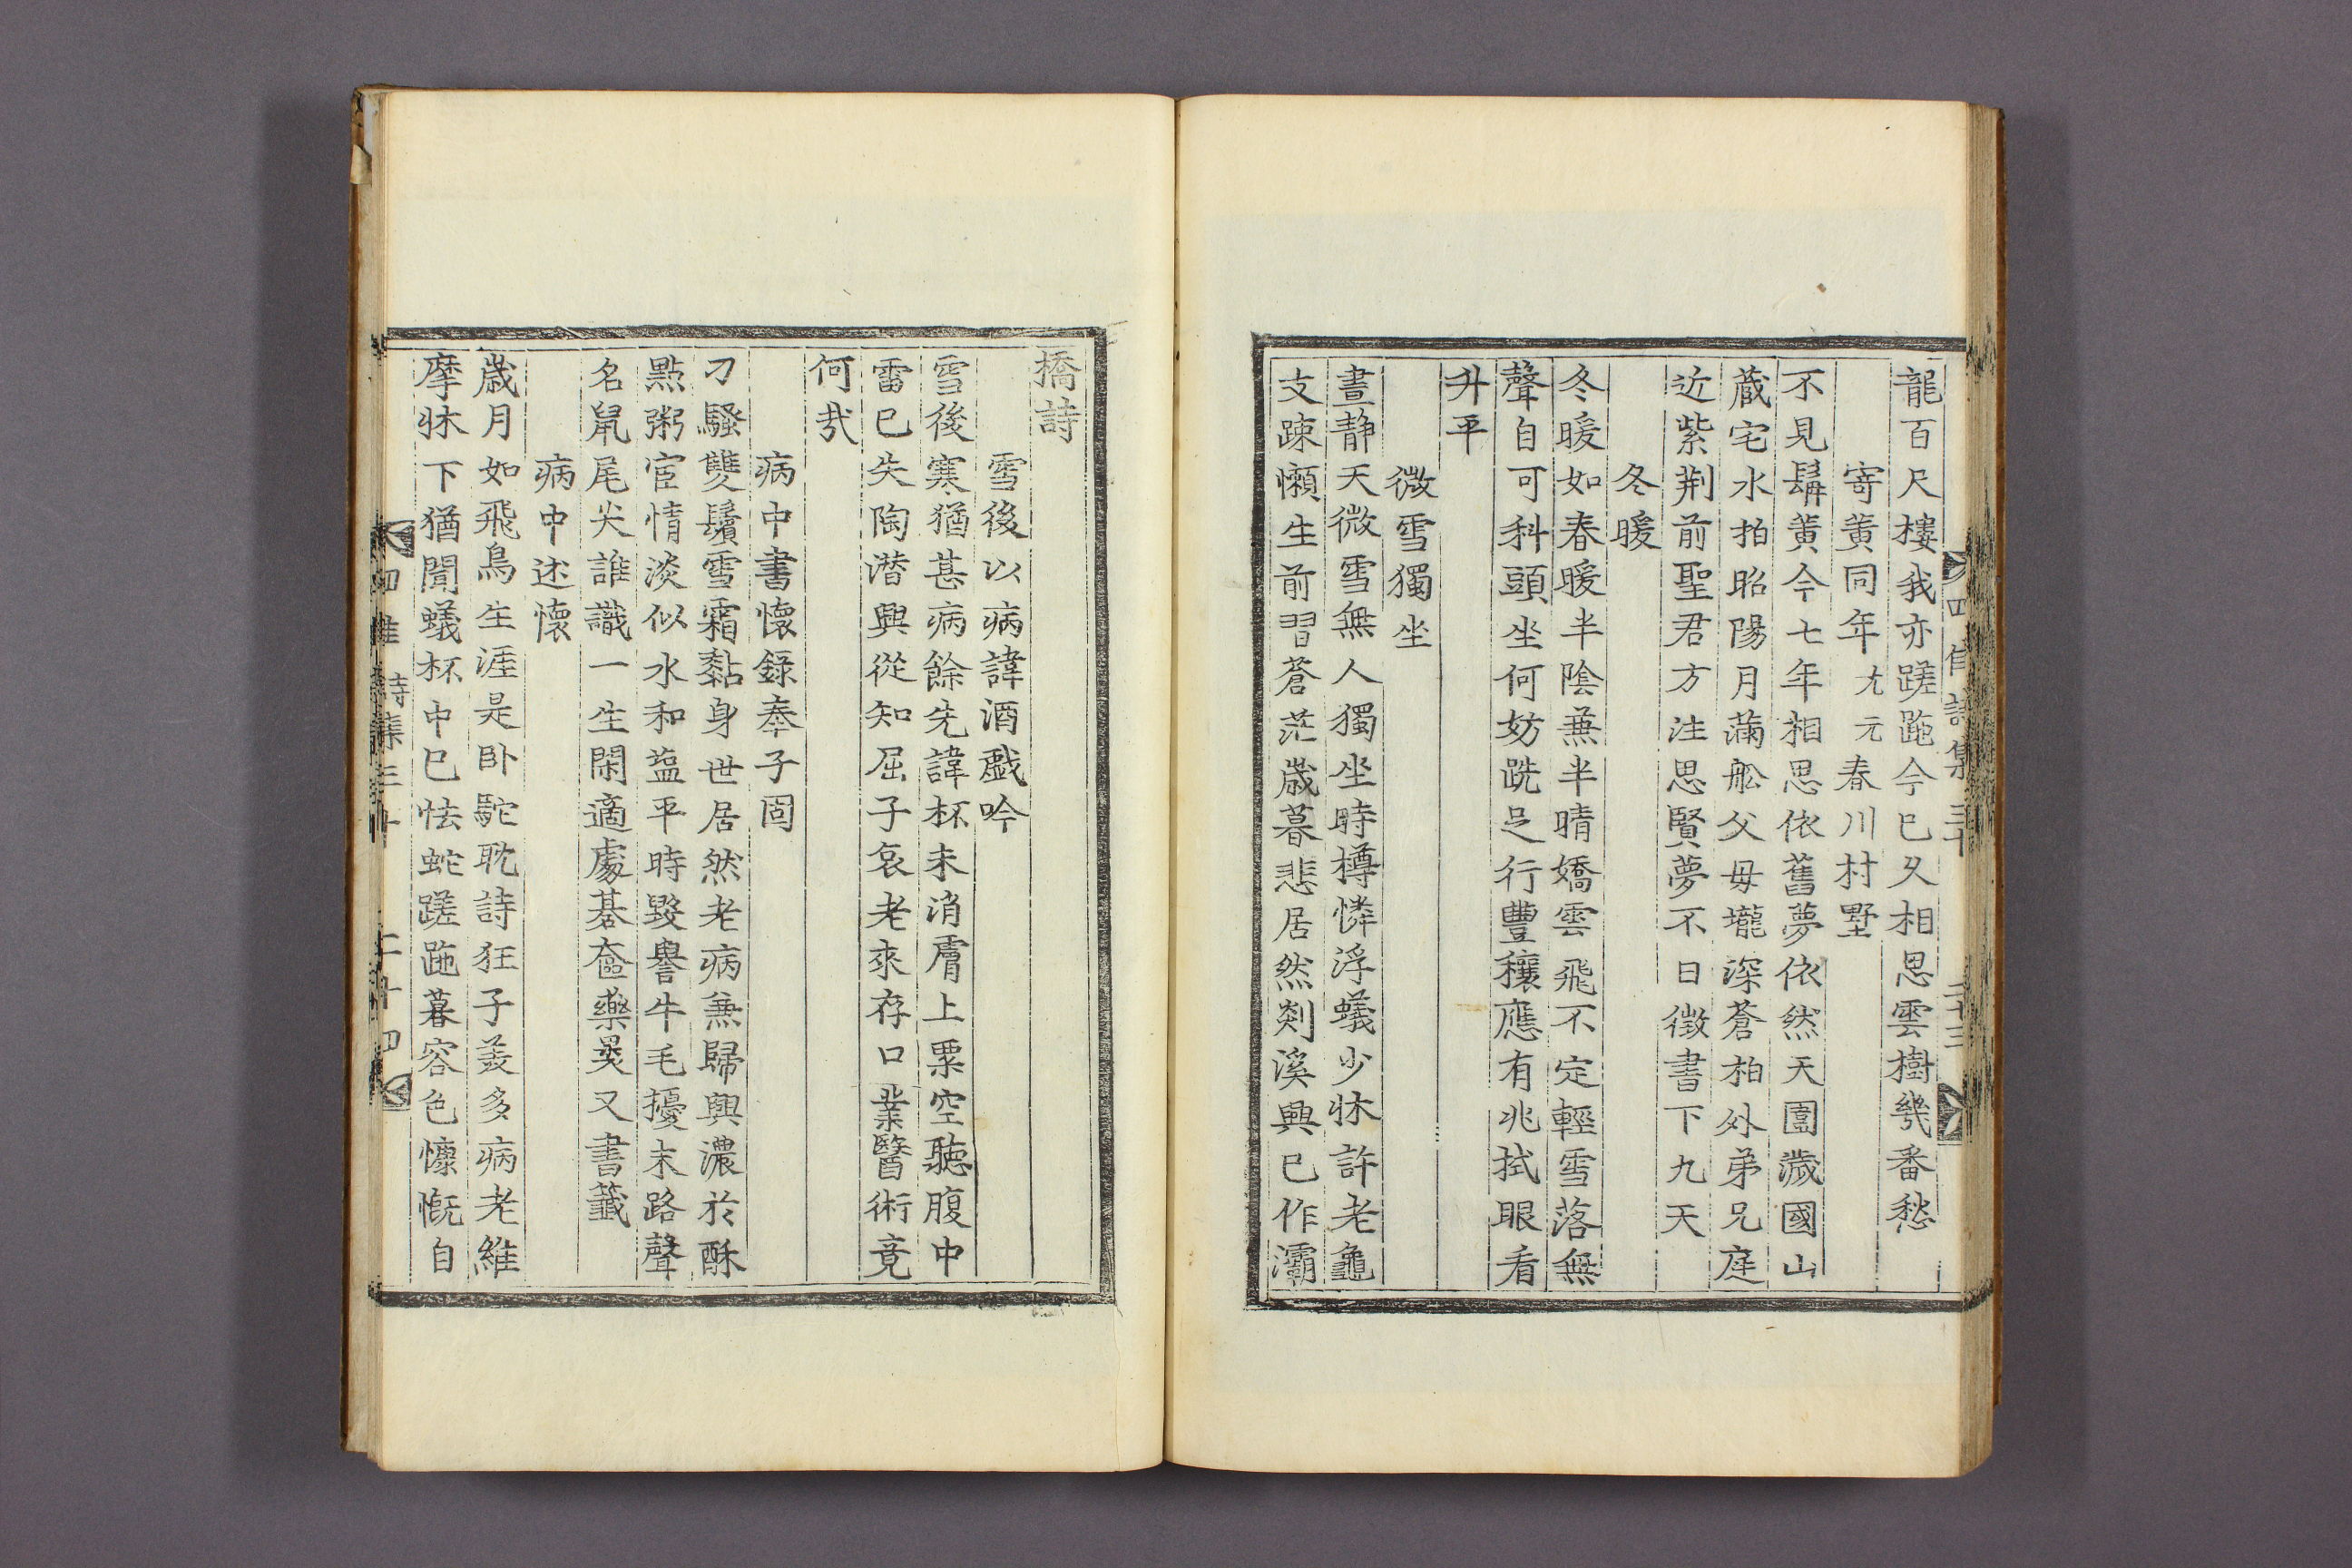 龍百尺樓我亦蹉跎今已久相思雲樹幾番愁
寄黃同年元春川村墅
不見鬅黃今七年相思依舊夢依然天圍濊國山
蔵宅水拍昭陽月滿舩父母壠深蒼柏外弟兄庭
近紫荆前聖君方注思賢夢不日徴書下九天
冬暖
冬暖如春暖半陰蕪半晴嬌雲飛不定輕雪落無
聲自可科頭坐何妨跣足行豐穰應有兆拭眼看
升平
微雪獨坐
晝静天微雪無人獨坐時樽憐浮蟻少牀許老龜
支踈懶生前習蒼茫歲暮悲居然剡溪興已作灞
橋詩
雪後以病諱酒戱吟
雪後寒猶甚病餘先諱杯未消膚上粟空聽腹中
雷已失陶潜興從知屈子哀老來存口業醫術竟
何㦲
病中書懐錄奉子固
刁騷雙鬢雪霜黏身世居然老病兼歸興濃於酥
點粥宦情淡似水和塩平時毀譽牛毛擾末路聲
名鼠尾尖誰識一生閑適處棊奩藥裹又書籤
病中述懐
歲月如飛鳥生涯是卧駝耽詩狂子羙多病老維
摩牀下猶聞蟻杯中已怯蛇蹉跎暮容色慷慨自
四佳詩集三十
二十四